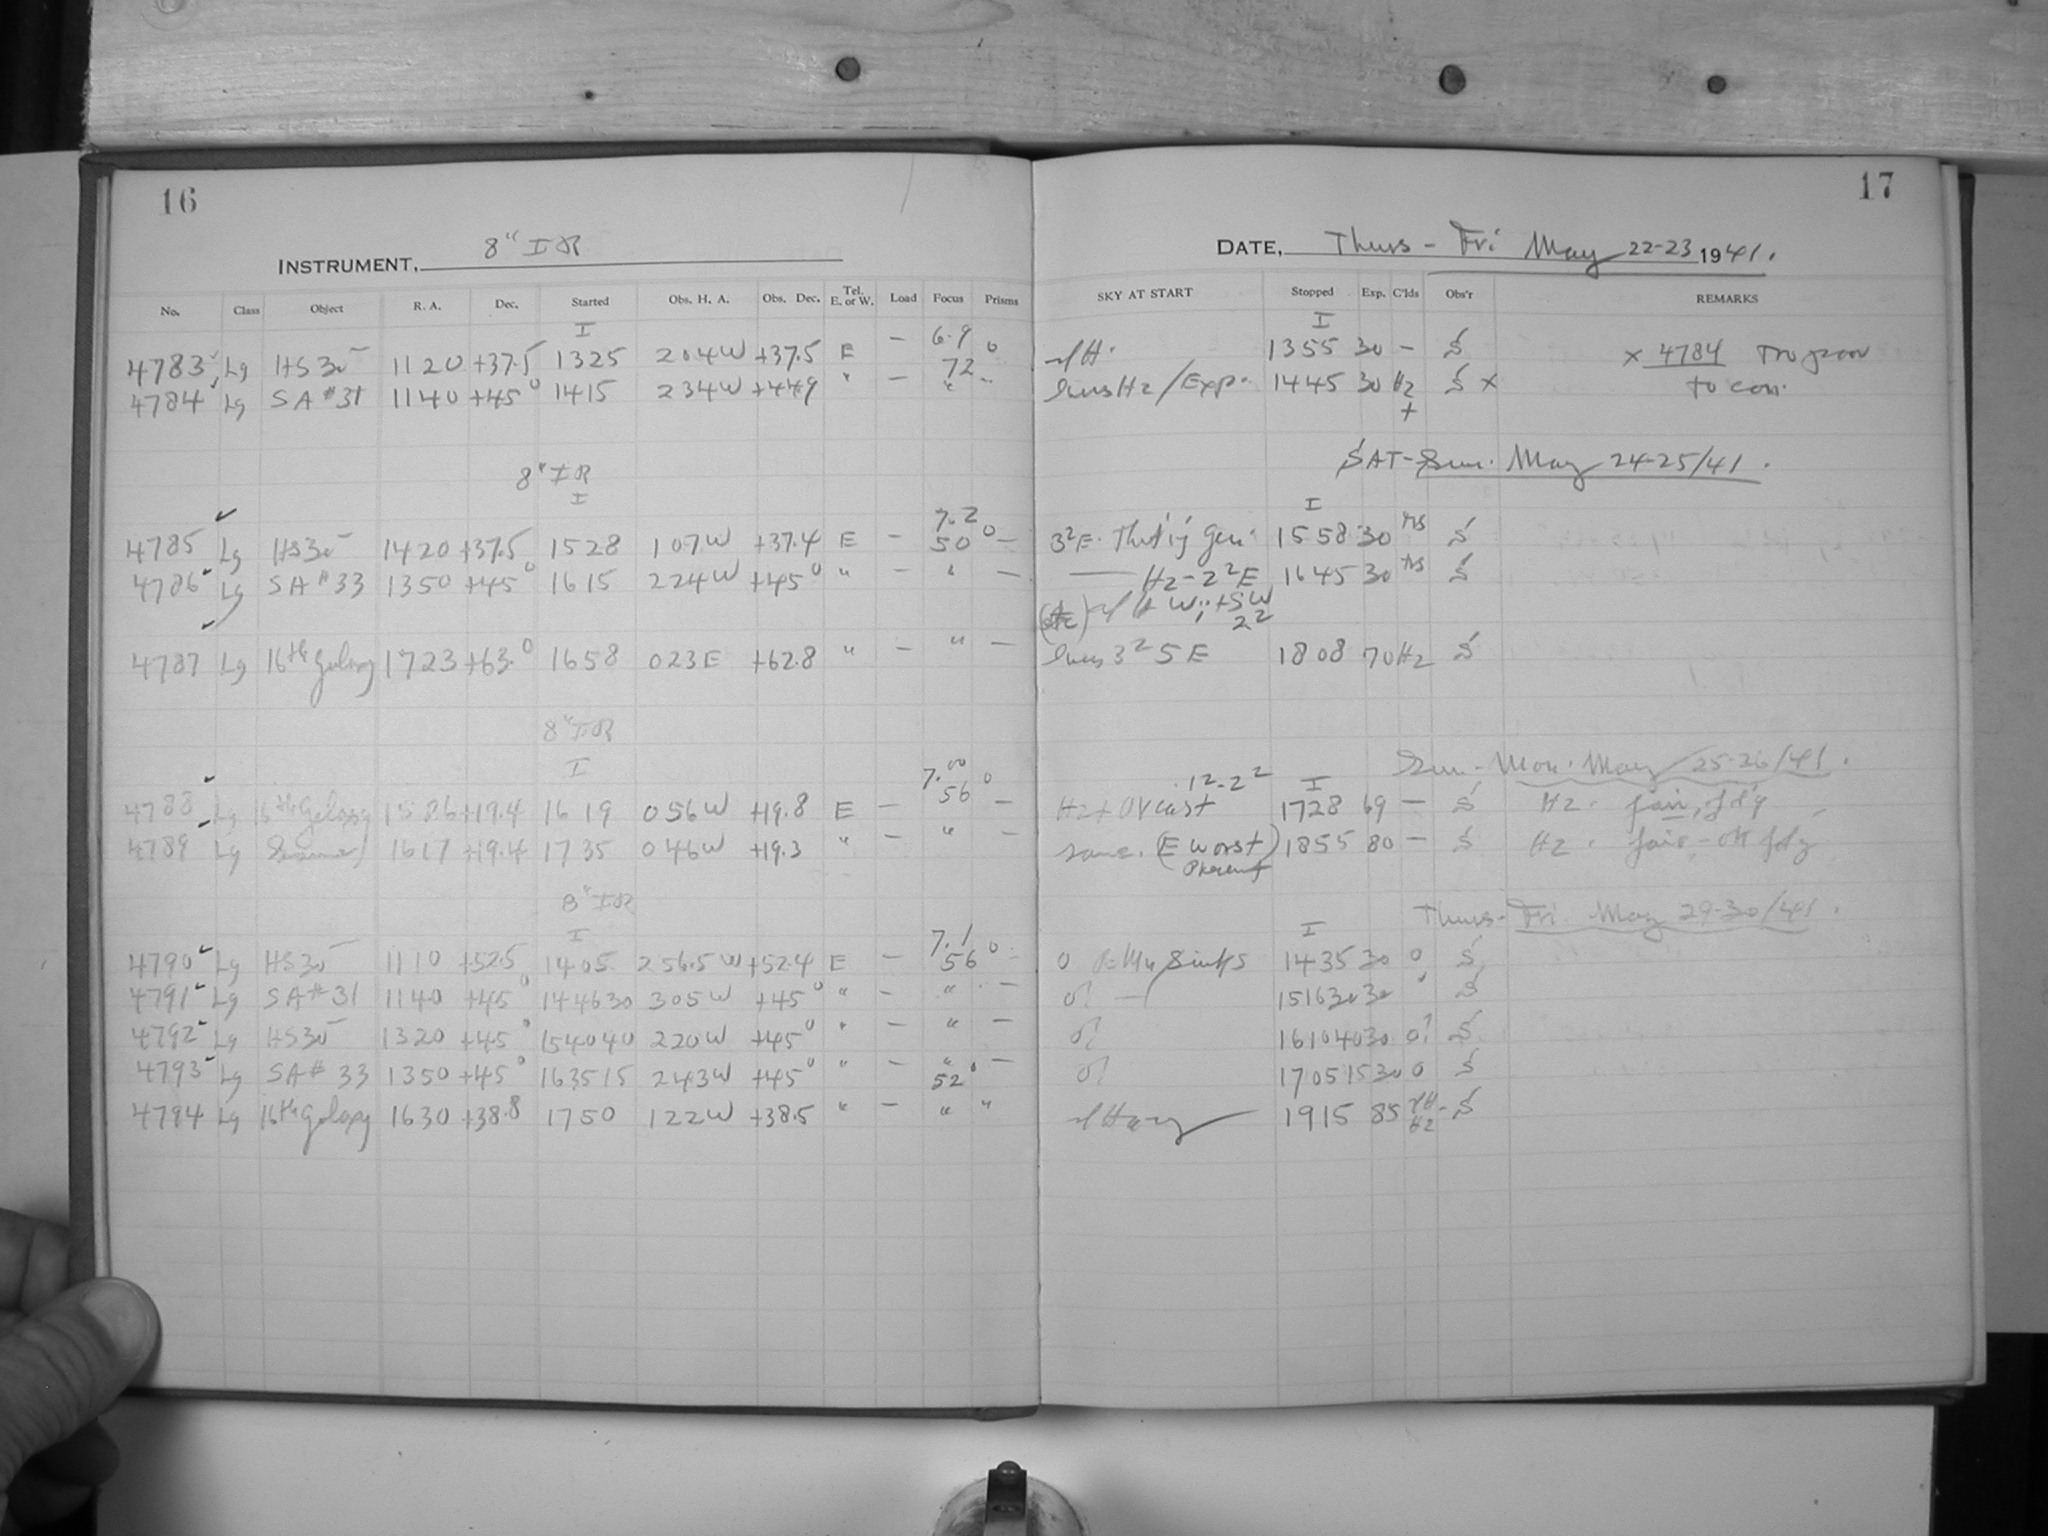 16
17
INSTRUMENT, 8" IR
DATE, Thurs - Fri May 22-23 1941.
No. Class Object R. A. Dec. Started Obs. H. A. Obs. Dec. Tel. E. or W. Load Focus Prisms SKY AT START Stopped Exp. C'lds Obs'r REMARKS
I 6.9 I
4783 Lg HS30 1120 +37.5 1325 204W +37.5 E — 72 0 1355 30 — S x 4784 too poor
4784 Lg SA #31 1140 +45° 1415 234W +449 " — " — Hz/Exp. 1445 30 Hz S x to con.
+
SAT-Sun. May 24-25/41.
8" IR
I 7.2 I
4785 Lg HS30 1420 +37.5 1528 107W +37.4 E — 50 0 — 3²E. Gen. 1558 30 S
4786 Lg SA #33 1350 +45° 1615 224W +45° " — " — Hz-2²E 1645 30 S
W; + SW
2²
4787 Lg 16th Galaxy 1723 +63.0 1658 023E +62.8 " — " — 3² SE 1808 70 Hz S
8" IR
Sun-Mon. May 25-26/41.
I 7.00 1²-2² I
4788 Lg 16th Galaxy 1526 +19.4 1619 056W +19.8 E — 56 0 — Hz + OVcast 1728 69 — S Hz. fair, fd'g
4789 Lg 1617 +19.4 1735 046W +19.3 " — " — same. (E worst) 1855 80 — S Hz. fair - OK fd'g
8" IR
Thurs-Fri. May 29-30/41.
I 7.1 I
4790 Lg HS30 1110 +52.5 1405 256.5W +52.4 E — 56 0 — 0 1435 30 0 S
4791 Lg SA #31 1140 +45° 144630 305W +45° " — " — 0? — 151630 30 " S
4792 Lg HS30 1320 +45° 154040 220W +45° " — " — 0? 161040 30 0? S
4793 Lg SA # 33 1350 +45° 163515 243W +45° " — " — 0? 170515 30 0 S
52
4794 Lg 16th Galaxy 1630 +38.8 1750 122W +38.5 " — " " 1915 85 Hz S